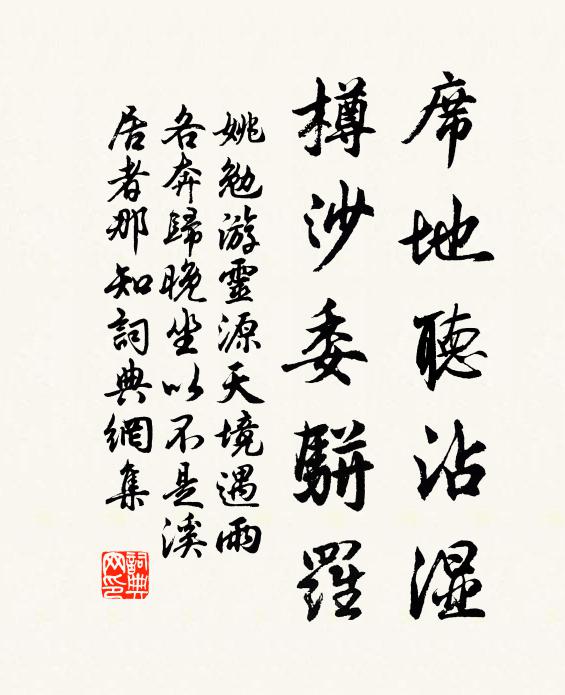 席地聽沾濕
樽沙委駢羅
姚勉游靈源天境遇雨
各奔歸晚坐以不是溪
居者那知詞典網集
詞典网印